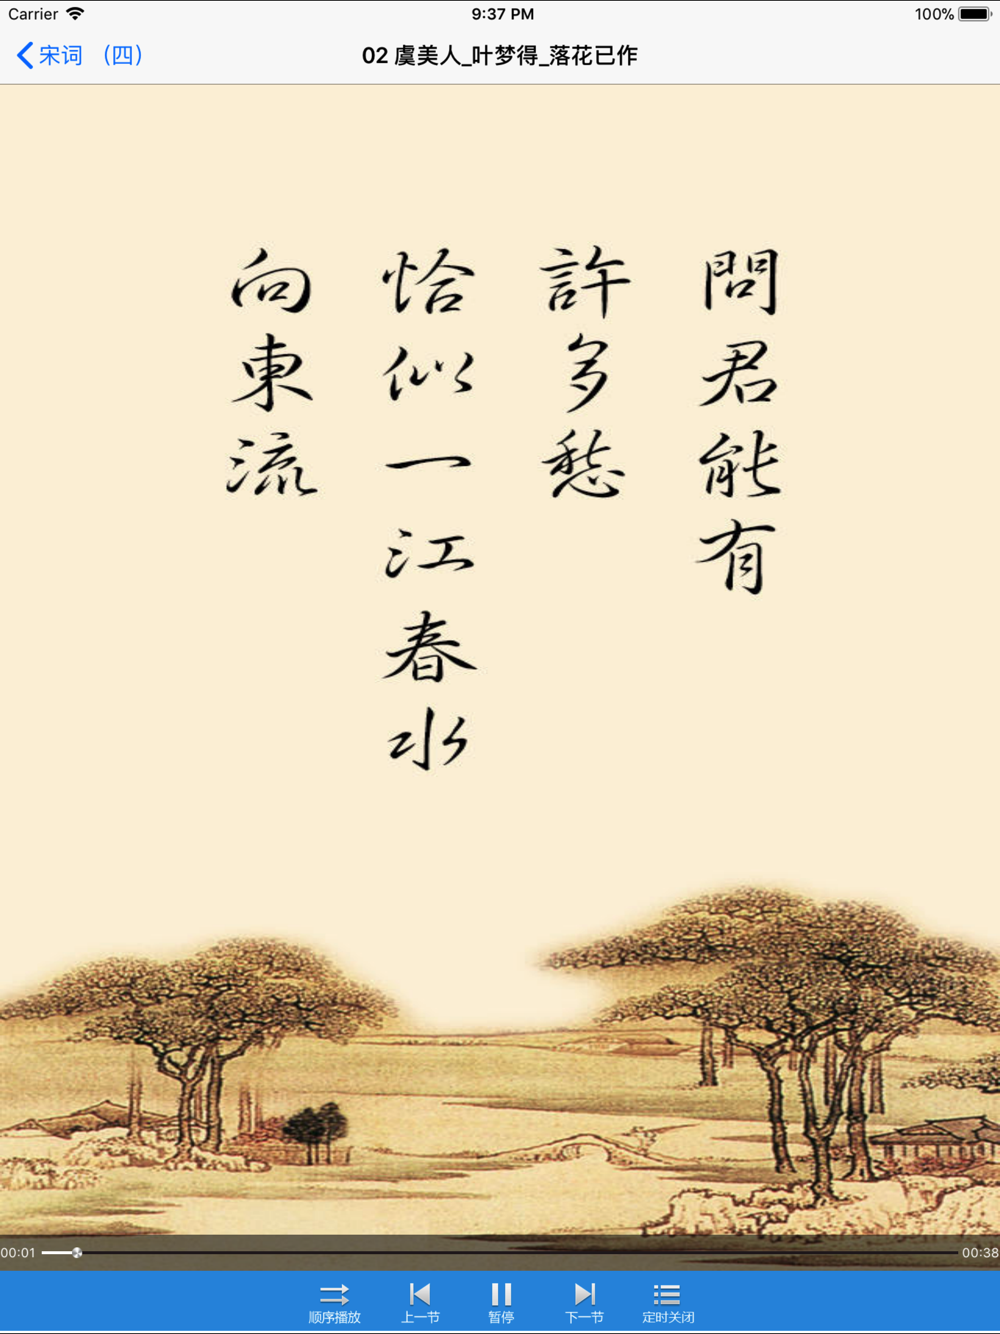 Carrier 9:37 PM 100%
宋词 （四） 02 虞美人_叶梦得_落花已作
問君能有
許多愁
恰似一江春水
向東流
00:01 00:38
顺序播放 上一节 暂停 下一节 定时关闭